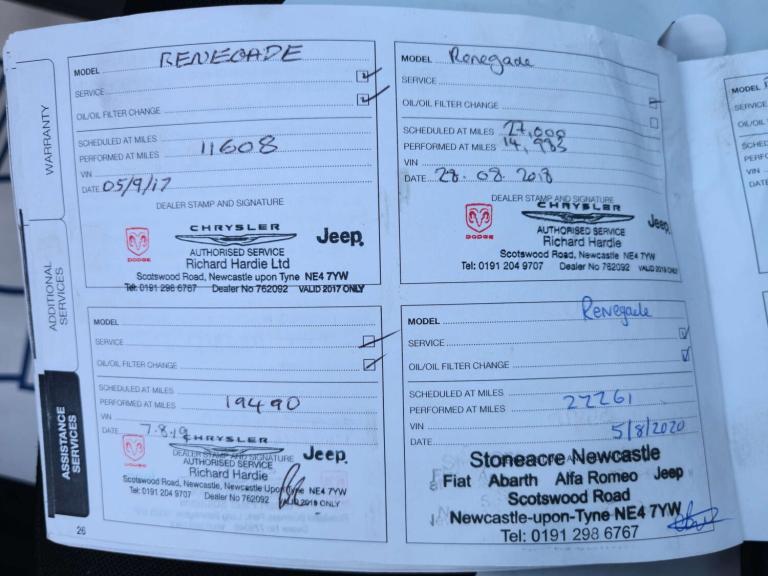 WARRANTY
ADDITIONAL SERVICES
ASSISTANCE SERVICES
MODEL RENEGADE
SERVICE
OIL/OIL FILTER CHANGE
SCHEDULED AT MILES
PERFORMED AT MILES 11608
VIN
DATE 05/9/17
DEALER STAMP AND SIGNATURE
DODGE
CHRYSLER
Jeep
AUTHORISED SERVICE
Richard Hardie Ltd
Scotswood Road, Newcastle upon Tyne NE4 7YW
Tel: 0191 298 6767 Dealer No 762092 VALID 2017 ONLY
MODEL Renegade
SERVICE
OIL/OIL FILTER CHANGE
SCHEDULED AT MILES 27,000
PERFORMED AT MILES 14,983
VIN
DATE 28.08.2018
DEALER STAMP AND SIGNATURE
DODGE
CHRYSLER
Jeep
AUTHORISED SERVICE
Richard Hardie
Scotswood Road, Newcastle upon Tyne NE4 7YW
Tel: 0191 204 9707 Dealer No 762092 VALID 2018 ONLY
MODEL
SERVICE
OIL/OIL FILTER CHANGE
SCHEDULED AT MILES
PERFORMED AT MILES 19490
VIN
DATE 7.8.19
CHRYSLER
DEALER STAMP AND SIGNATURE
Jeep
AUTHORISED SERVICE
Richard Hardie
Scotswood Road, Newcastle, Newcastle Upon Tyne NE4 7YW
Tel: 0191 204 9707 Dealer No 762092 VALID 2019 ONLY
MODEL Renegade
SERVICE
OIL/OIL FILTER CHANGE
SCHEDULED AT MILES
PERFORMED AT MILES 22261
VIN
DATE 5/8/2020
Stoneacre Newcastle
Fiat Abarth Alfa Romeo Jeep
Scotswood Road
Newcastle-upon-Tyne NE4 7YW
Tel: 0191 298 6767
26
MODEL
SERVICE
OIL/OIL
VIN
DATE